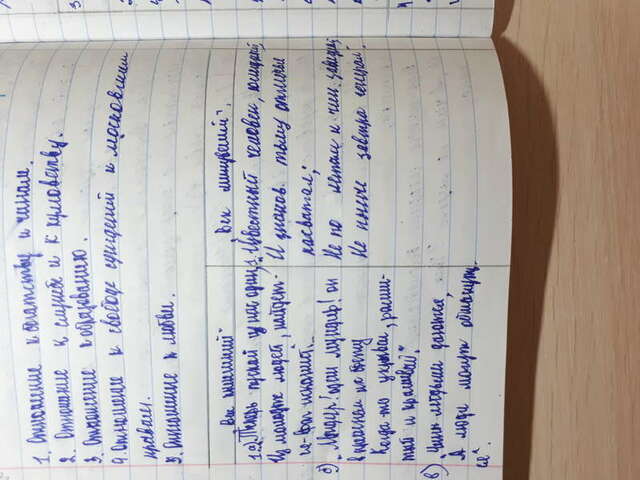 1. Отношение к богатству и чинам.
2. Отношение к службе и к кумовству.
3. Отношение к образованию.
4. Отношение к свободе суждений к московским
нравам.
5. Отношение к любви.
„Век нынешний"
1. а) „Теперь пускай из нас один,
Из молодых людей, найдет-
ся- враг исканий"..
б) „Мундир! один мундир! он
в прежнем их быту
Когда-то укрывал, расши-
тый и красивый."
в) „Чины людьми даются,
А люди могут обмануть-
ся".
„Век минувший".
1. „Известный человек, солидный,
И знаков тьму отличья
нахватал;
Не по летам и чин завидный,
Не нынче завтра генерал".